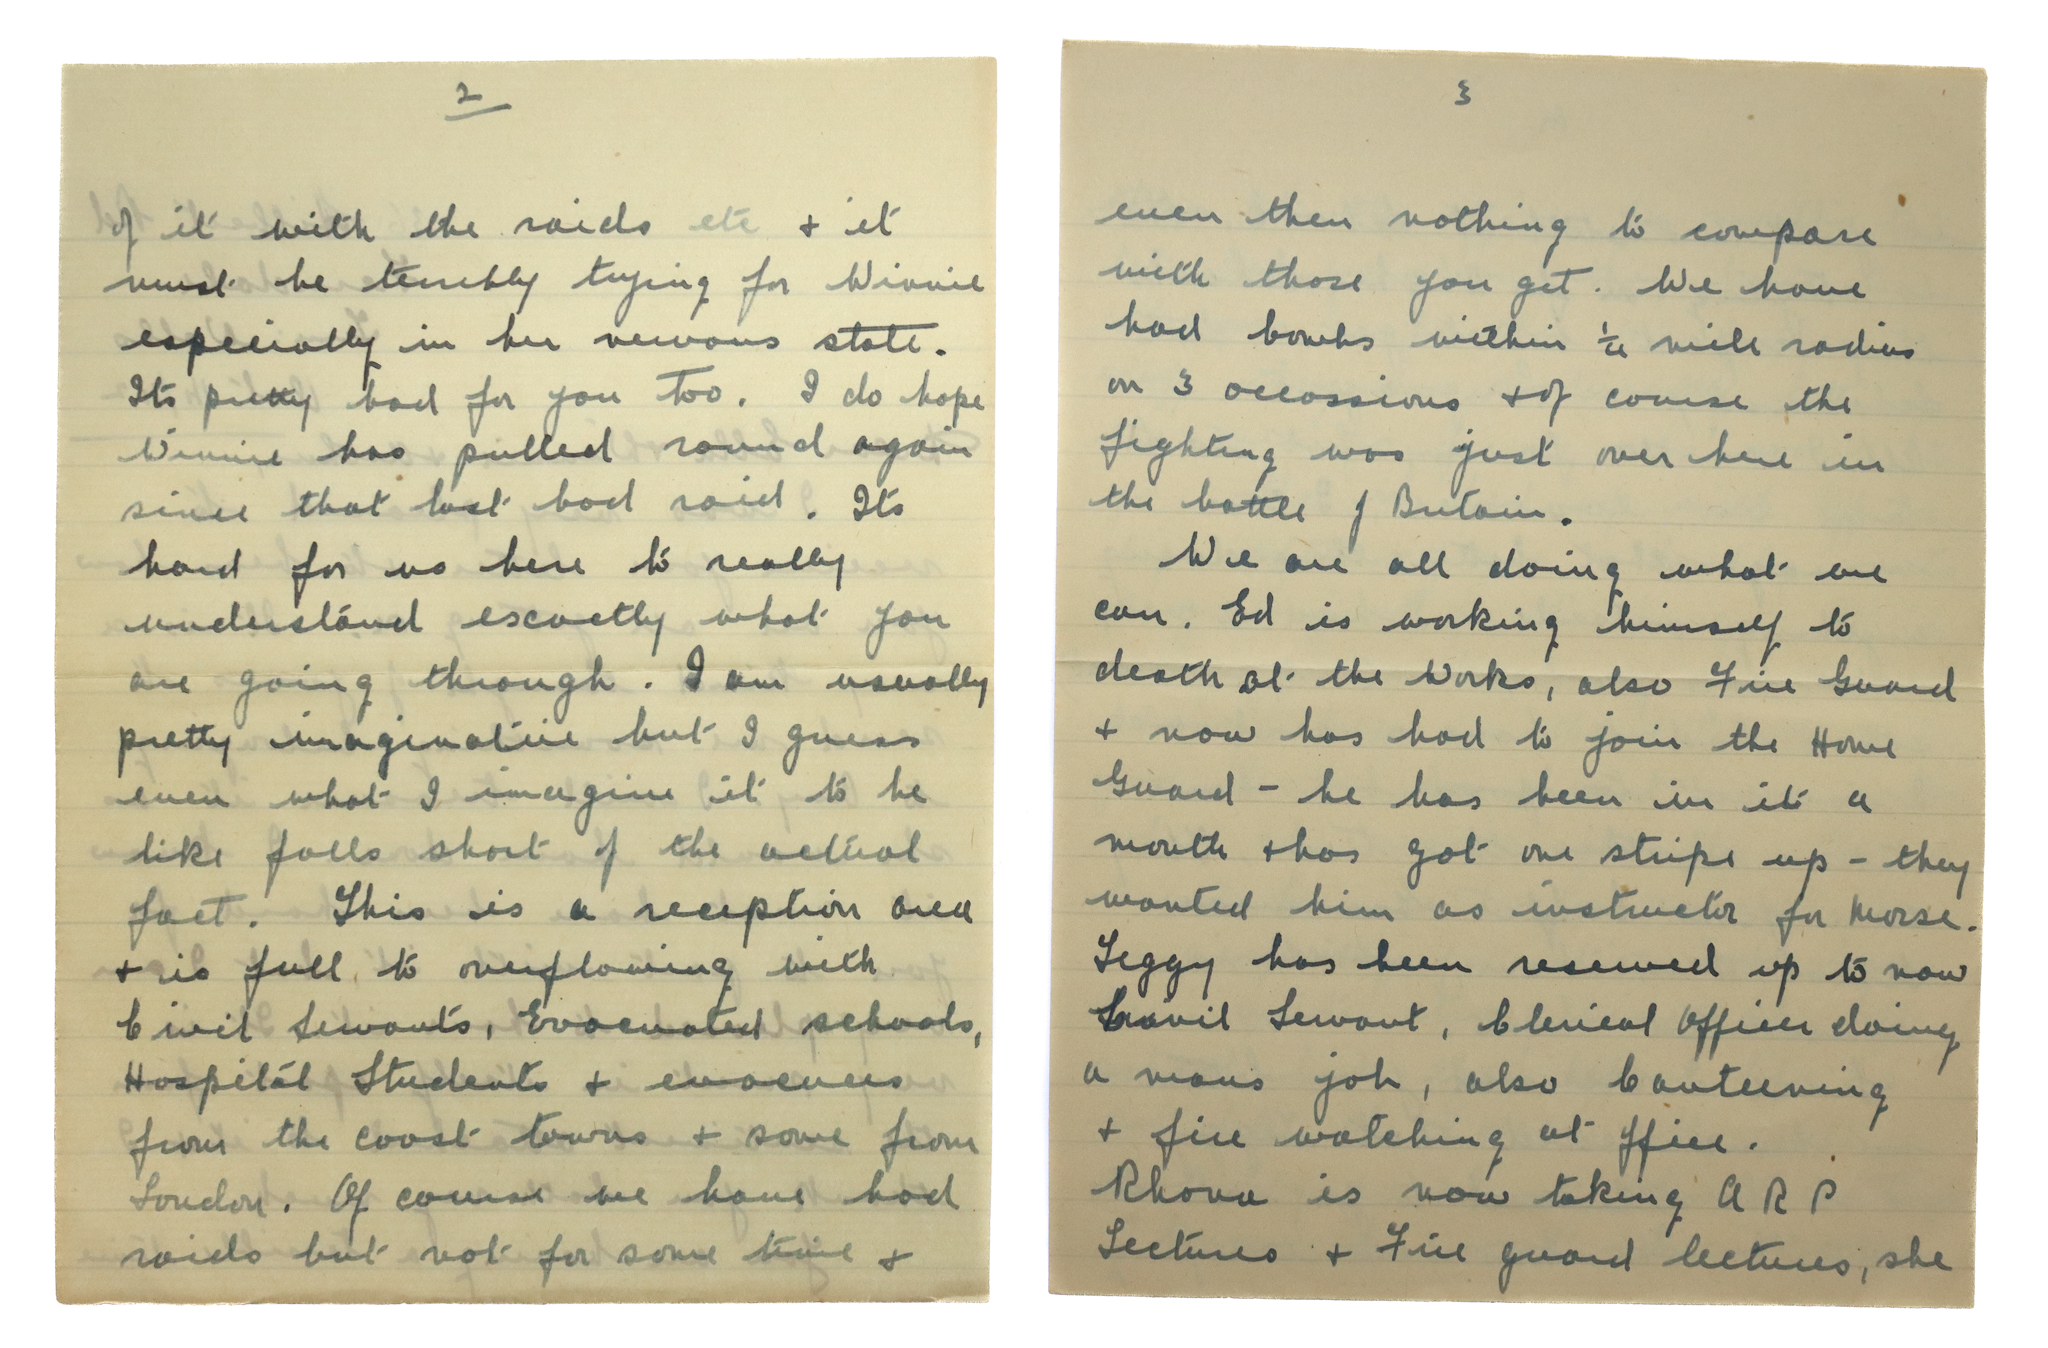 2
of it with the raids etc + it
must be terribly trying for Winnie
especially in her nervous state.
Its pretty bad for you too. I do hope
Winnie has pulled round again
since that last bad raid. Its
hard for us here to really
understand escactly what you
are going through. I am usually
pretty imaginative but I guess
even what I imagine it to be
like falls short of the actual
fact. This is a reception area
+ is full to overflowing with
Civil Servants, Evacuated schools,
Hospital Students + evacuees
from the coast towns + some from
London. Of course we have had
raids but not for some time +
3
even then nothing to compare
with those you get. We have
had bombs within ¼ mile radius
on 3 occassions + of course the
fighting was just over here in
the battle of Britain.
We are all doing what we
can. Ed is working himself to
death at the Works, also Fire Guard
+ now has had to join the Home
Guard - he has been in it a
month + has got one stripe up - they
wanted him as instructor for Morse.
Leggy has been reserved up to now
Civil Servant, Clerical Officer doing
a mans job, also Canteening
+ fire watching at office.
Rhona is now taking A R P
Lectures + Fire guard lectures, she